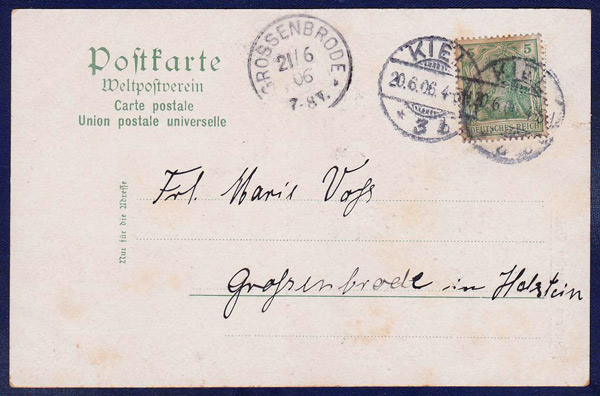 Postkarte
Weltpostverein
Carte postale
Union postale universelle
GROSSENBRODE
21/6
06
7-8V.
KIEL
20.6.06.4-
3 b
KIEL
5
DEUTSCHES REICH
Nur für die Adresse
Frl. Marie Voss
Großenbrode in Holstein